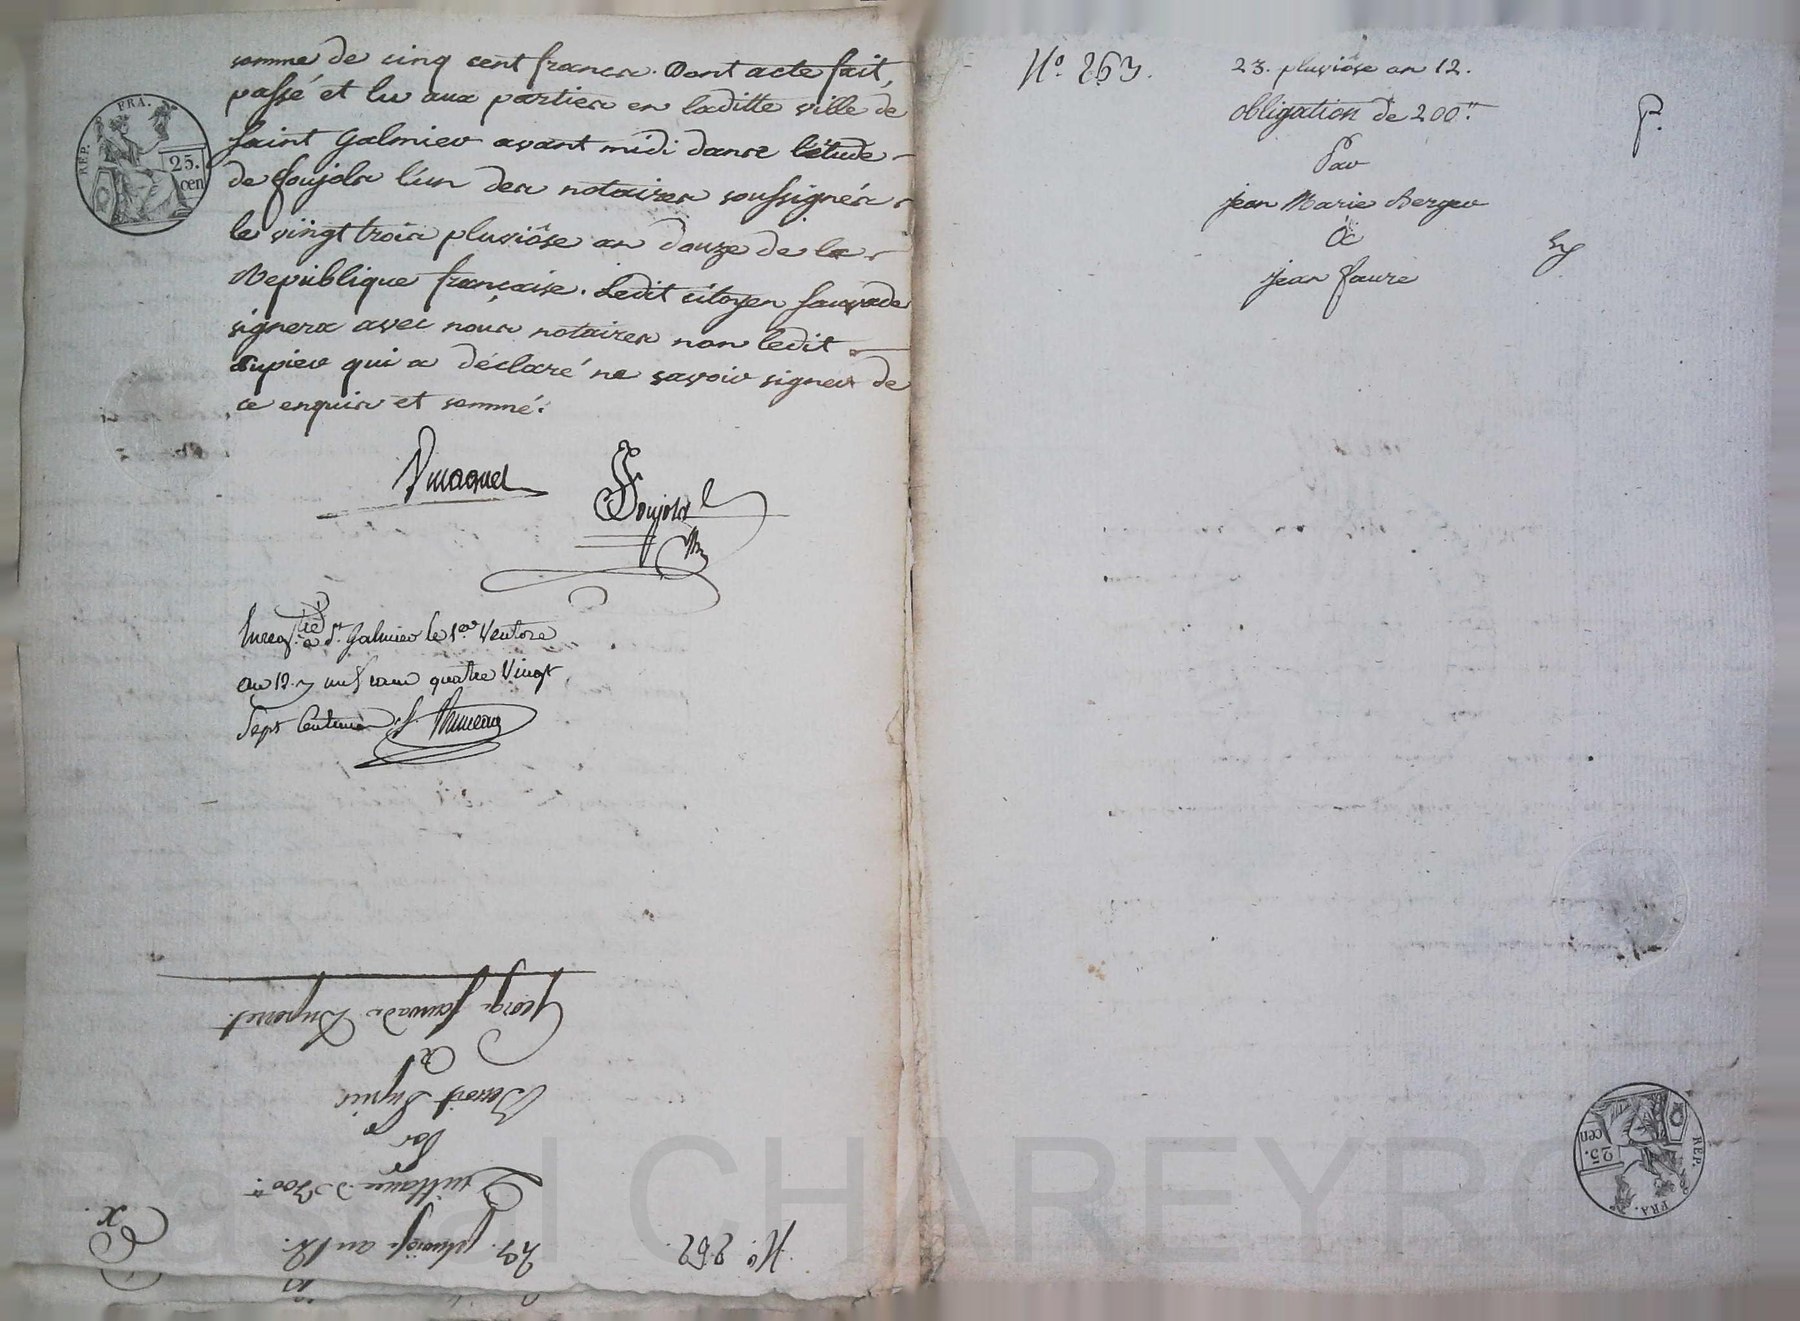 somme de cinq cent francs. Dont acte fait,
passé et lu aux parties en laditte ville de
Saint Galmier avant midi dans l'étude
de Soujols l'un des notaires soussignés
le vingt trois pluviôse an douze de la
Republique française. Ledit citoyen Sauvade
signera avec nous notaires non ledit
Dupier qui a déclaré ne savoir signer de
ce enquis et sommé.
REP. FRA.
25.
cen
Soujols
Enregistré à St. Galmier le 1er Ventose
an 12. un franc quatre Vingt
Sept Centimes
George Sauvade
à
Benoit Dupier
Par
Quittance de
23. pluviôse an 12.
N.° 262.
Ex.
N.° 263.
23. pluviôse an 12.
obligation de 200tt
Par
jean Marie Berger
à
jean Faure
P.
REP. FRA.
25.
cen
Pascal CHAREYRO